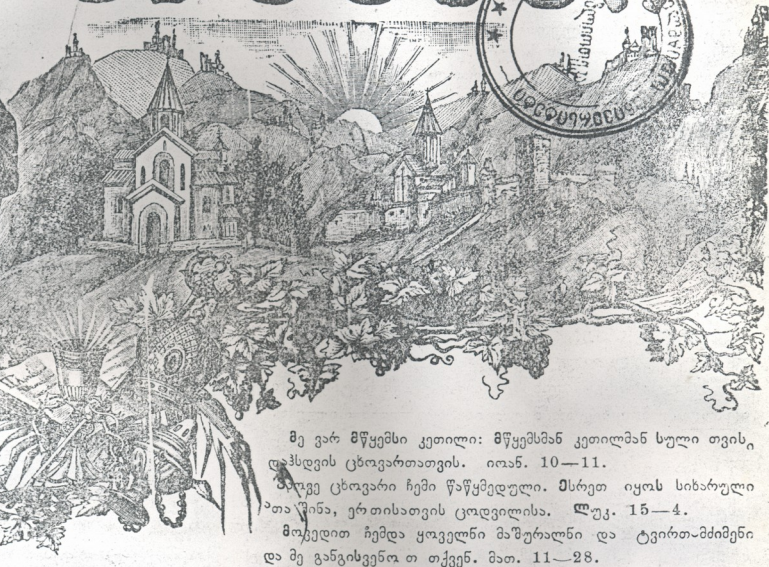 მე ვარ მწყემსი კეთილი: მწყემსმან კეთილმან სული თვისი
დაჰსდვის ცხოვართათვის. იოან. 10—11.
ვჰპოვე ცხოვარი ჩემი წაწყმედული. ესრეთ იყოს სიხარული
ცათა შინა, ერთისათვის ცოდვილისა. ლუკ. 15—4.
მოვედით ჩემდა ყოველნი მაშურალნი და ტვირთ-მძიმენი
და მე განგისვენოთ თქვენ. მათ. 11—28.